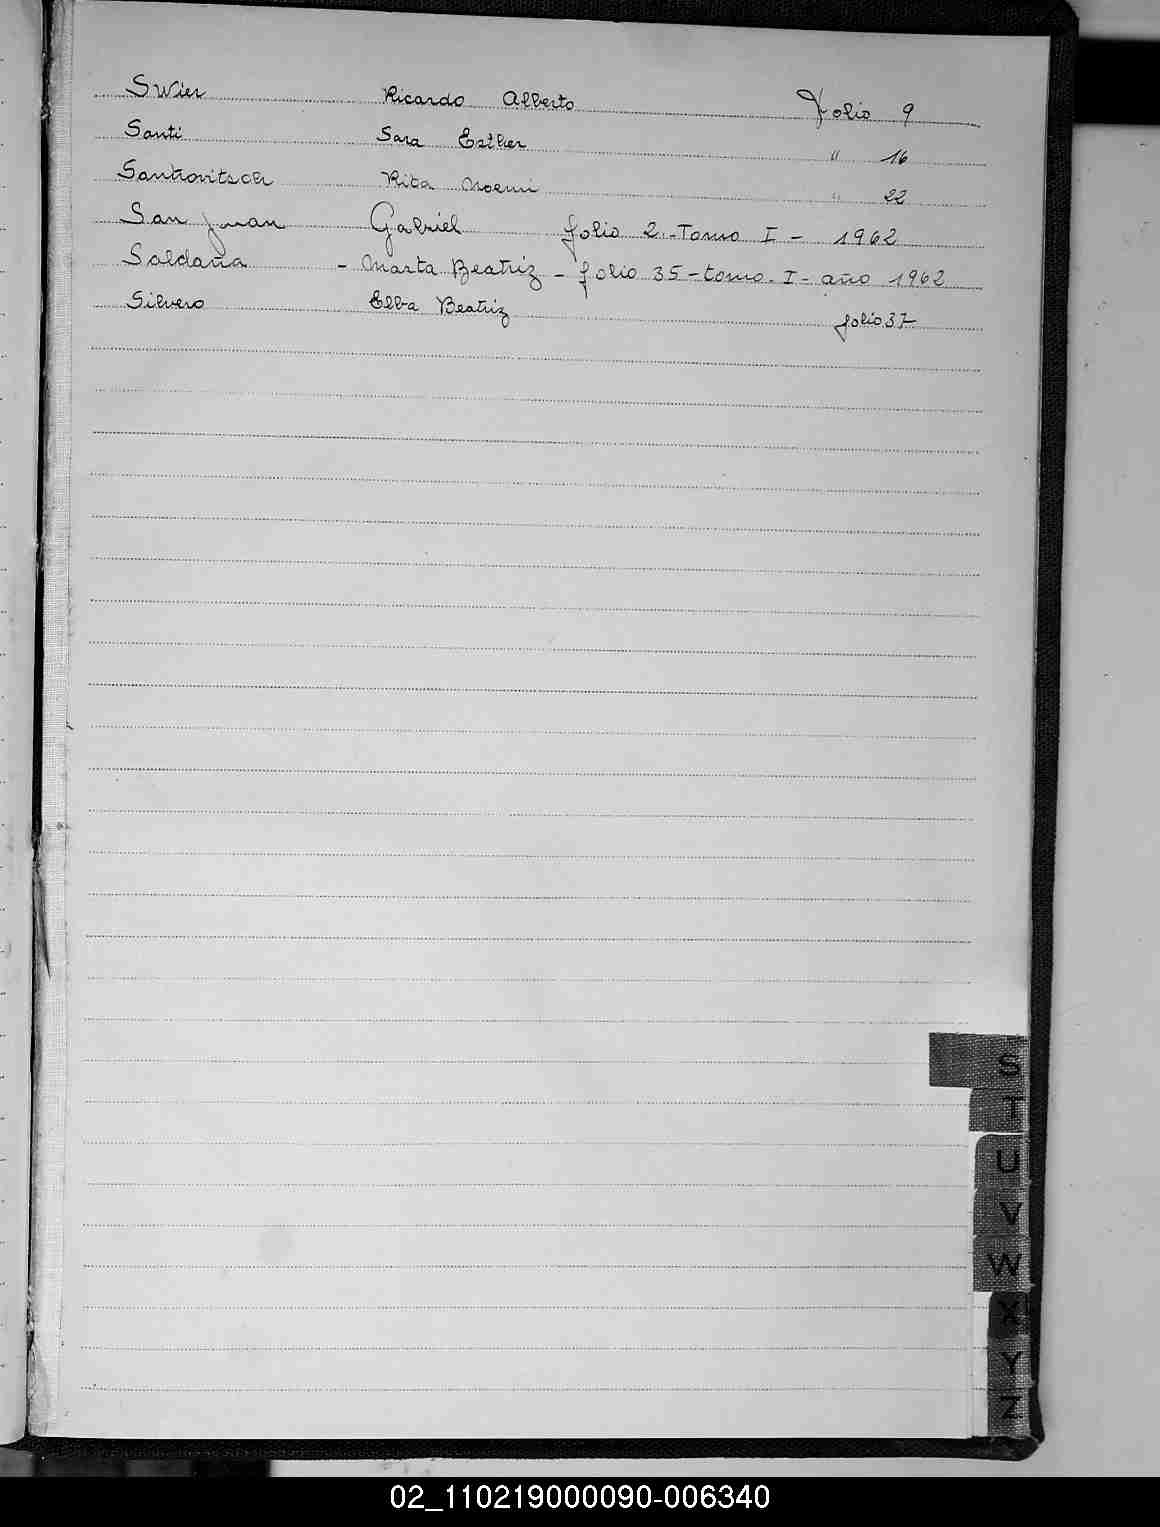 Swier Ricardo Alberto Folio 9
Santi Sara Esther " 16
Santrovitsch Rita Noemi " 22
San Juan Gabriel folio 2.-Tomo I - 1962
Saldaña - Marta Beatriz - folio 35 - tomo. I - año 1962
Silvero Elba Beatriz folio 37-
S
T
U
V
W
X
Y
Z
02_110219000090-006340